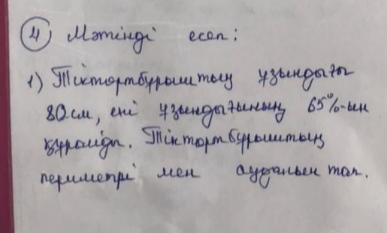 4) Мәтінді есеп:
1) Тіктөртбұрыштың ұзындығы
80 см, ені ұзындығының 65%-ын
құрайды. Тіктөртбұрыштың
периметрі мен ауданын тап.